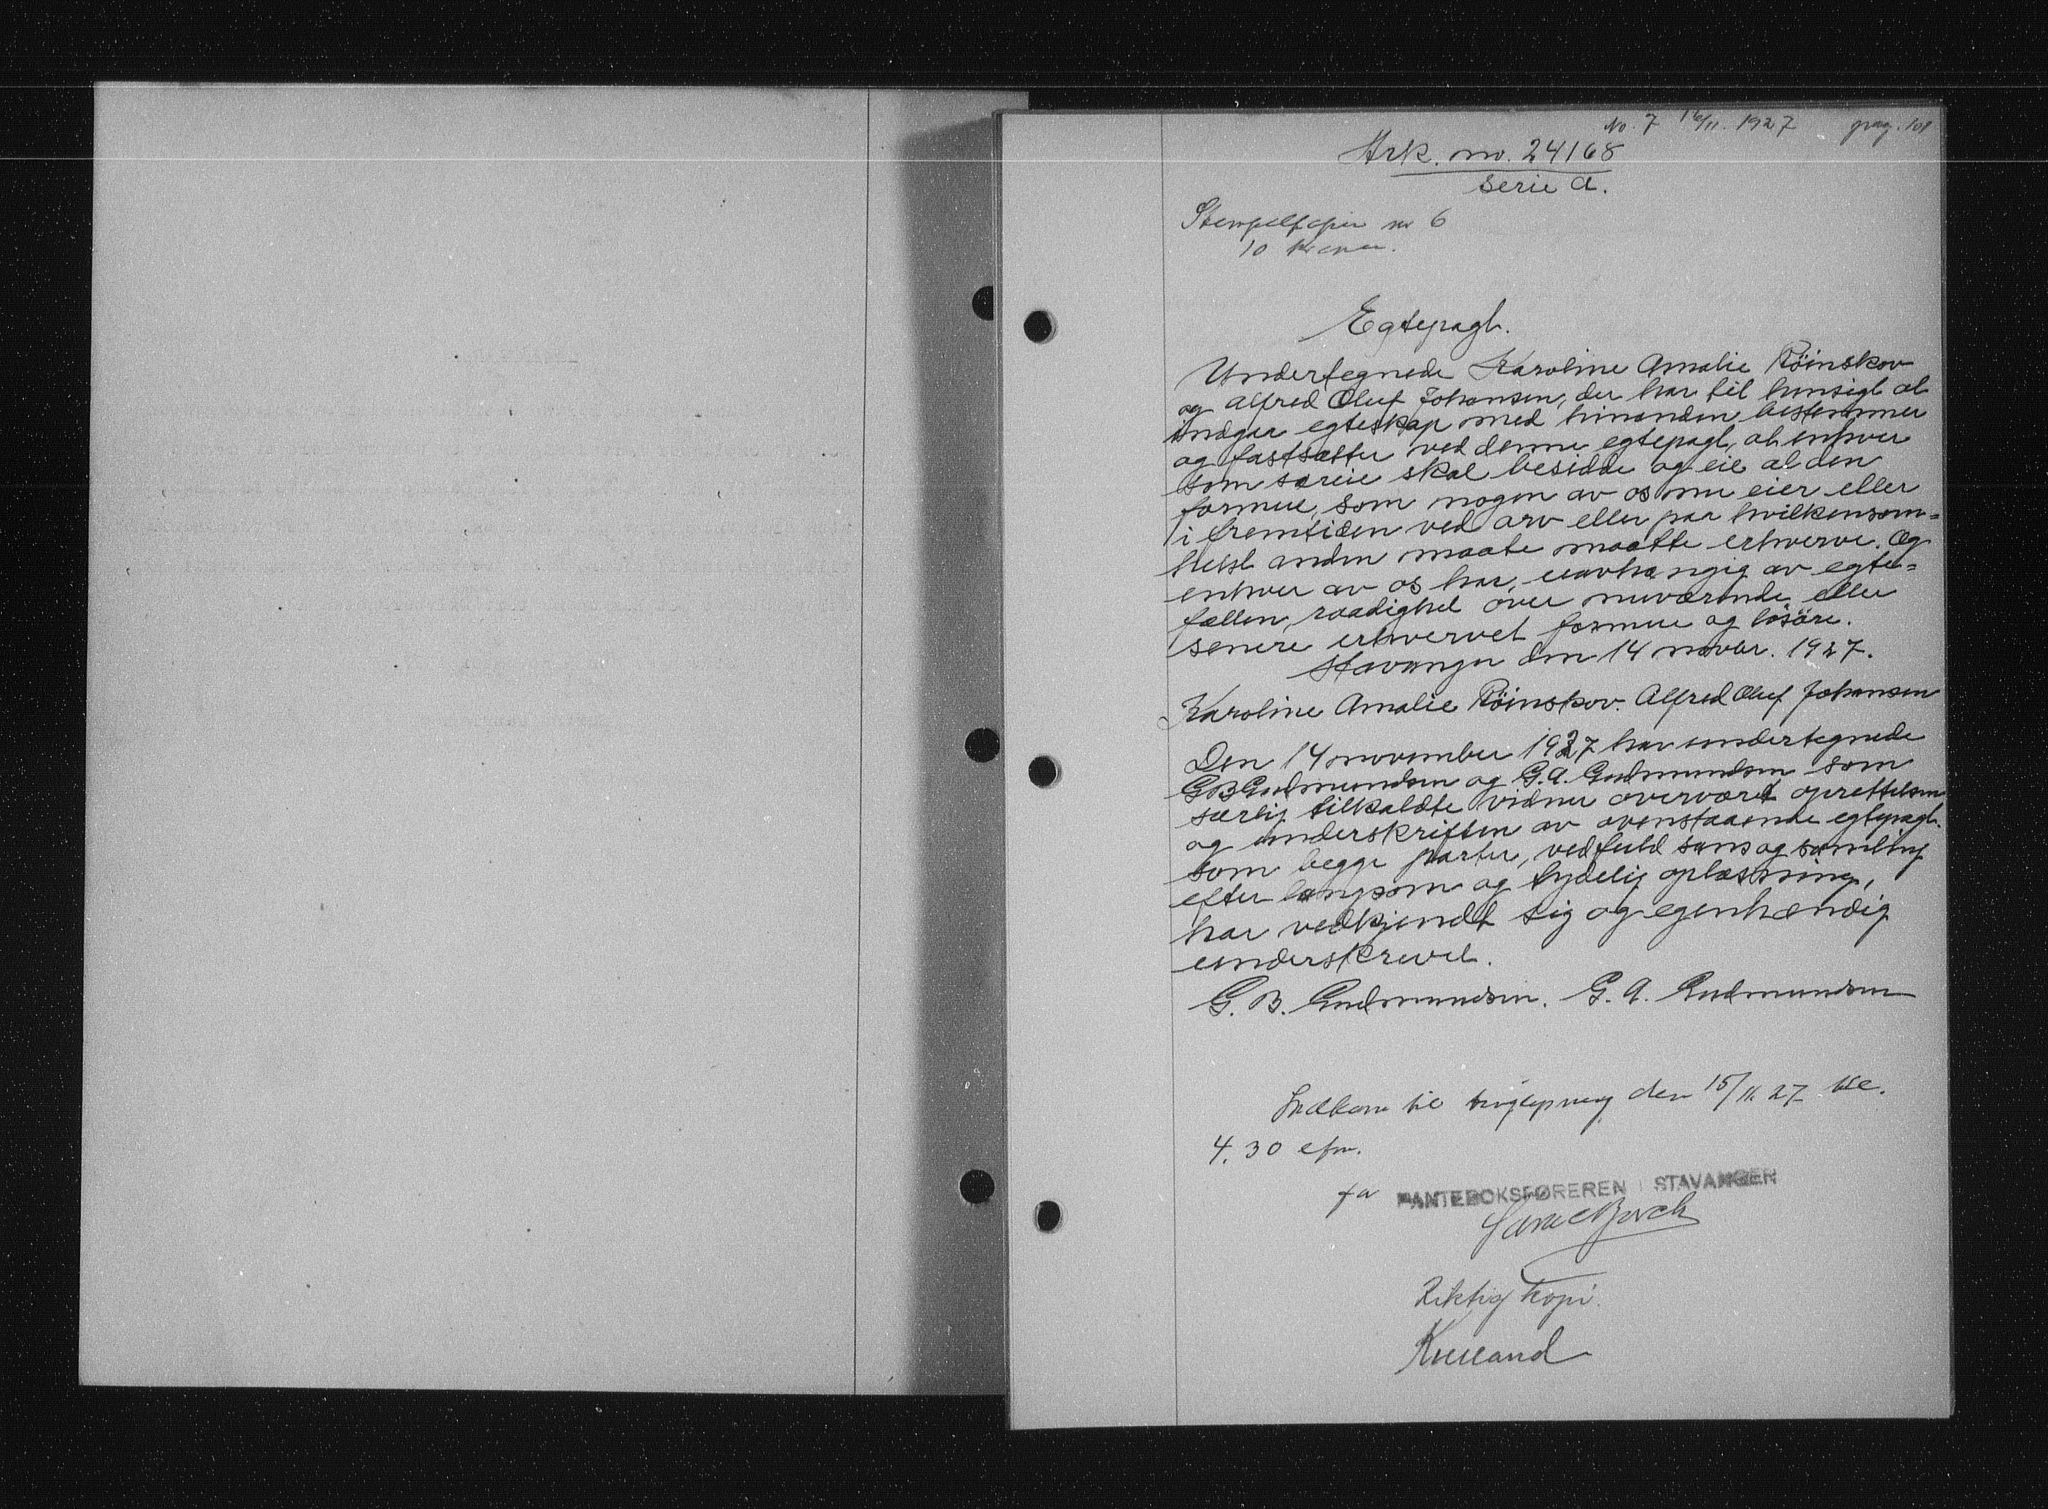 No. 7 16/11. 1927 pag. 101
Ark. no. 24168
serie a.
Stempelpapir nr 6
10 kroner.
Egtepagt.
Undertegnede Karoline Amalie Röinskov
og Alfred Oluf Johansen, der har til hensigt at
indgaa egteskap med hinanden, bestemmer
og fastsætter ved denne egtepagt, at enhver
som særeie skal besidde og eie al den
formue, som nogen av os nu eier eller
i fremtiden ved arv eller paa hvilkensom-
helst anden maate maatte erhverve. Og
enhver av os har, uavhængig av egte-
fællen, raadighet over nuværende eller
senere erhvervet formue og løsøre.
Stavanger den 14 novbr. 1927.
Karoline Amalie Röinskov. Alfred Oluf Johansen
Den 14 november 1927 har undertegnede
G B Gudmundsen og G. A. Gudmundsen som
særlig tilkaldte vidner overværet oprettelsen
og underskriften av ovenstaaende egtepagt.
som begge parter, ved fuld sans og samling
efter langsom og tydelig oplæsning,
har vedkjendt sig og egenhændig
underskrevet.
G. B. Gudmundsen. G. A. Gudmundsen
Indkom til tinglysning den 15/11. 27 kl.
4.30 efm.
for PANTEBOKSFØREREN I STAVANGER
Riktig kopi.